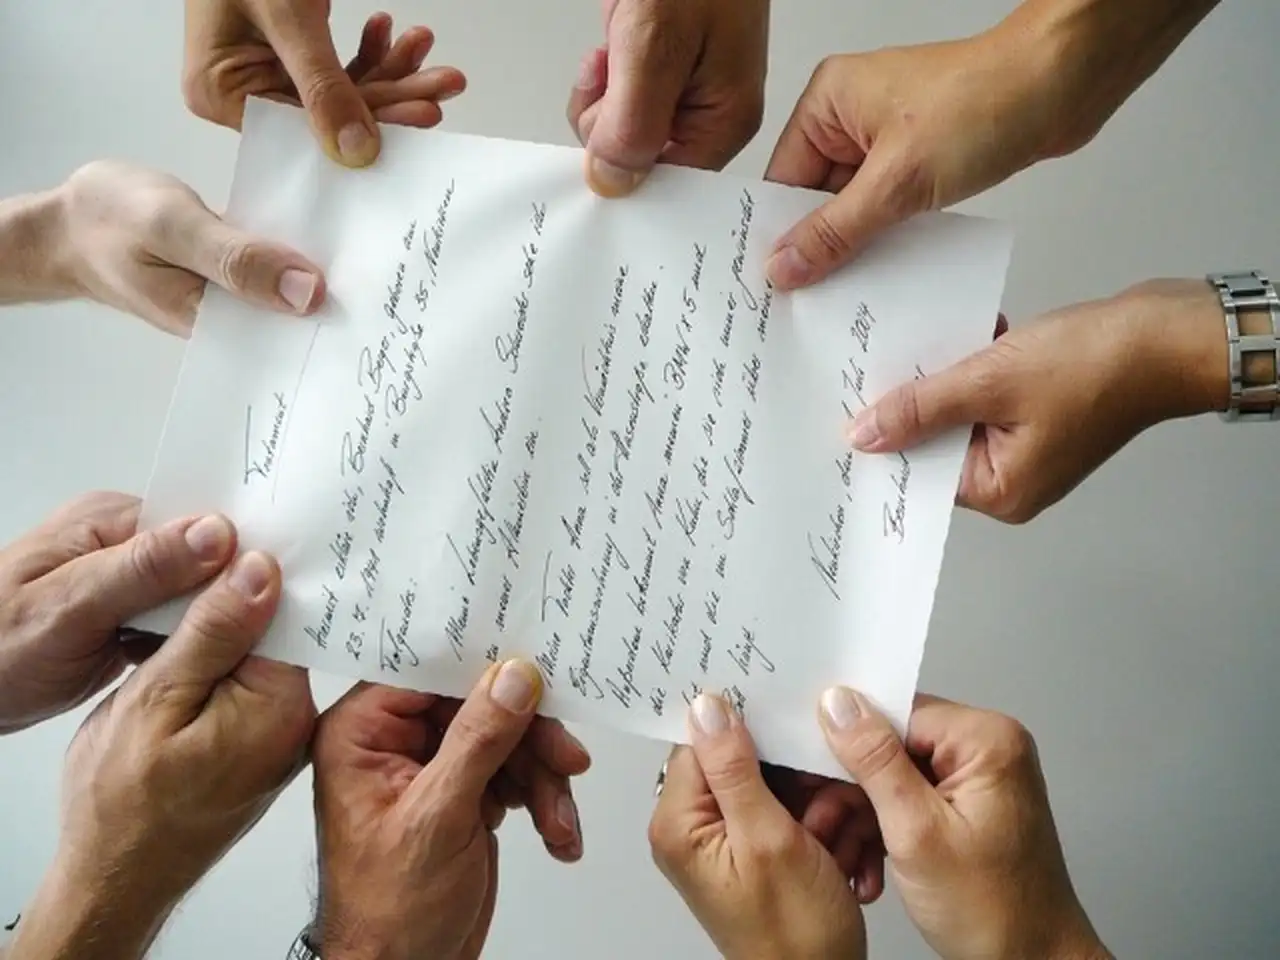 Testament
Hiermit erkläre ich, Bernhard Berger, geboren am
23. 7. 1941 wohnhaft in Burgstraße 35, Neukirchen
Folgendes:
Meine Lebensgefährtin Andrea Schneider setze ich
zu meiner Alleinerbin ein.
Meine Tochter Anna soll als Vermächtnis meine
Eigentumswohnung in der Parkstraße erhalten.
Außerdem bekommt Anna meinen BMW X5 und
die Kuh, die sie sich immer gewünscht
und die im Schlafzimmer über meinem
Bett hängt.
Neukirchen, den Juli 2004
Bernhard